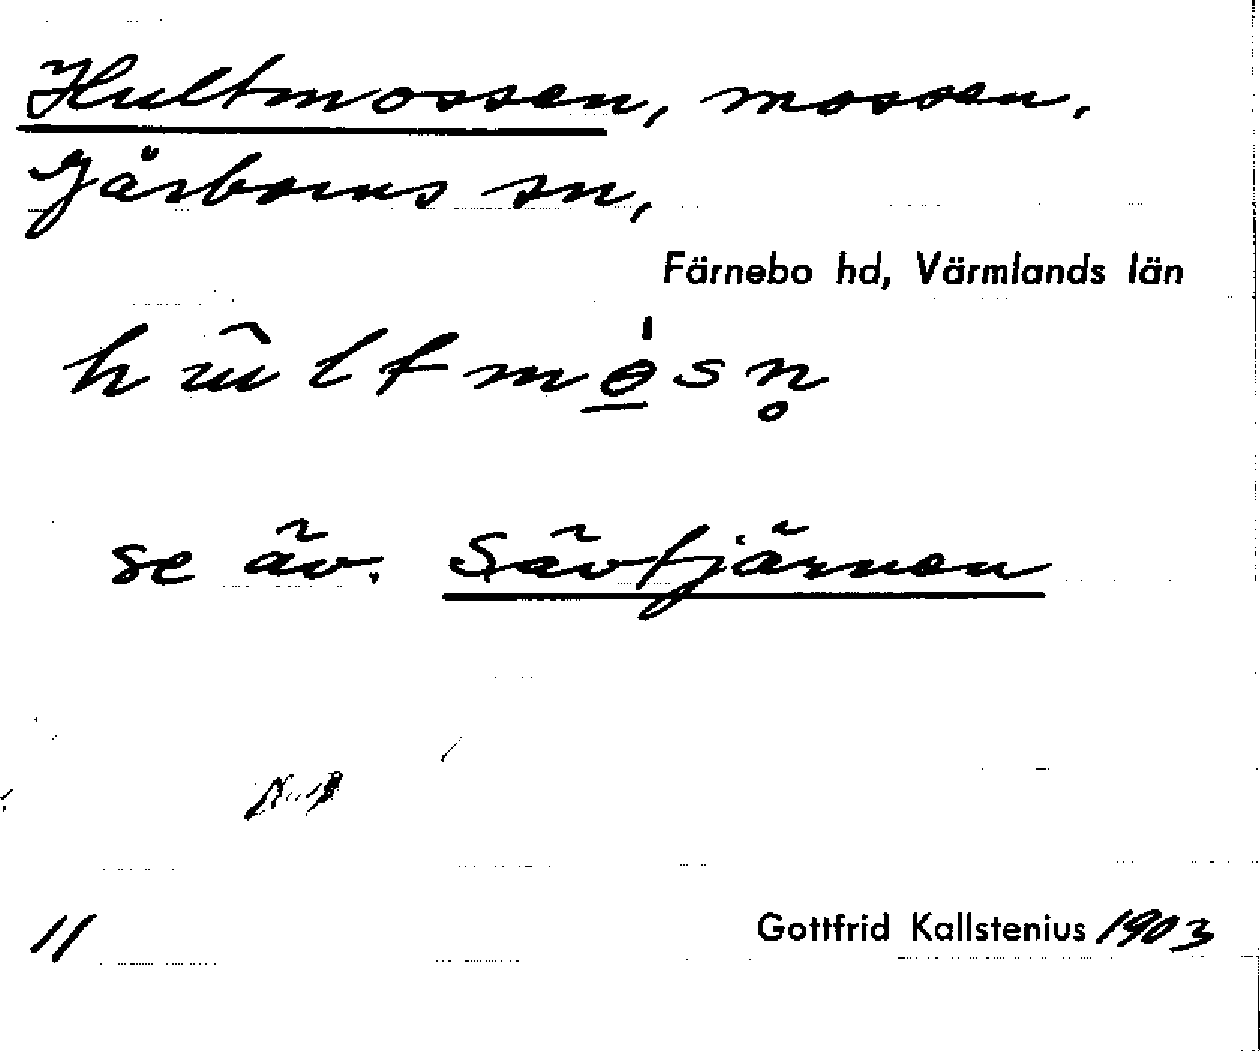 Hultmossen, mossen,
Gåsborns sn,
Färnebo hd, Värmlands län
hûltmo̱̍sn̥
se äv. Sävtjärnen
11
Gottfrid Kallstenius 1903